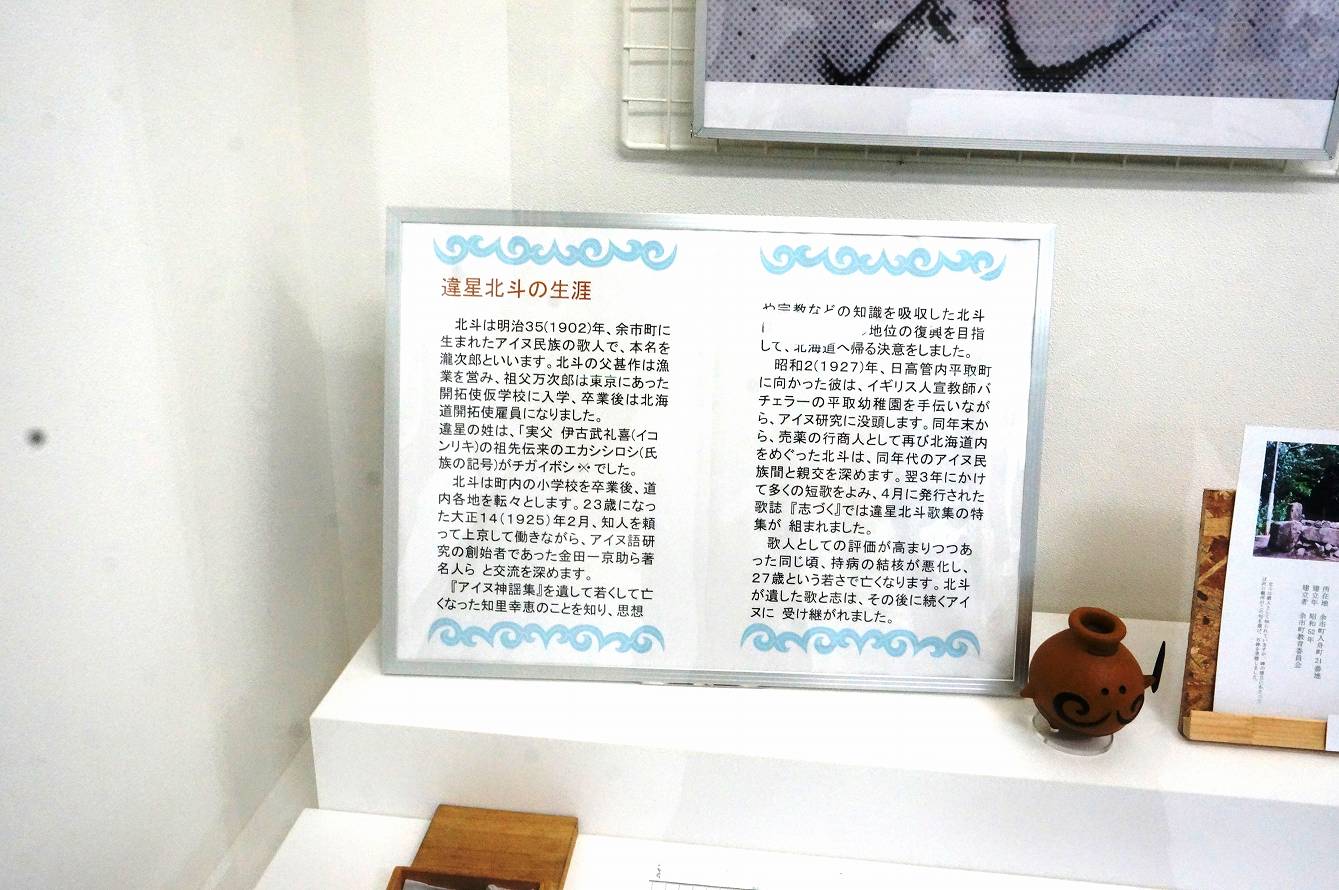 違星北斗の生涯
北斗は明治35(1902)年、余市町に
生まれたアイヌ民族の歌人で、本名を
瀧次郎といいます。北斗の父甚作は漁
業を営み、祖父万次郎は東京にあった
開拓使仮学校に入学、卒業後は北海
道開拓使雇員になりました。
違星の姓は、「実父 伊古武礼喜(イコ
ンリキ)の祖先伝来のエカシシロシ(氏
族の記号)がチガイボシ※でした。
北斗は町内の小学校を卒業後、道
内各地を転々とします。23歳になっ
た大正14(1925)年2月、知人を頼
って上京して働きながら、アイヌ語研
究の創始者であった金田一京助ら著
名人ら と交流を深めます。
『アイヌ神謡集』を遺して若くして亡
くなった知里幸恵のことを知り、思想
や宗教などの知識を吸収した北斗
地位の復興を目指
して、北海道へ帰る決意をしました。
昭和2(1927)年、日高管内平取町
に向かった彼は、イギリス人宣教師バ
チェラーの平取幼稚園を手伝いなが
ら、アイヌ研究に没頭します。同年末か
ら、売薬の行商人として再び北海道内
をめぐった北斗は、同年代のアイヌ民
族間と親交を深めます。翌3年にかけ
て多くの短歌をよみ、4月に発行された
歌誌『志づく』では違星北斗歌集の特
集が 組まれました。
歌人としての評価が高まりつつあ
った同じ頃、持病の結核が悪化し、
27歳という若さで亡くなります。北斗
が遺した歌と志は、その後に続くアイ
ヌに 受け継がれました。
所在地 余市町入舟町21番地
建立年 昭和52年
建立者 余市町教育委員会